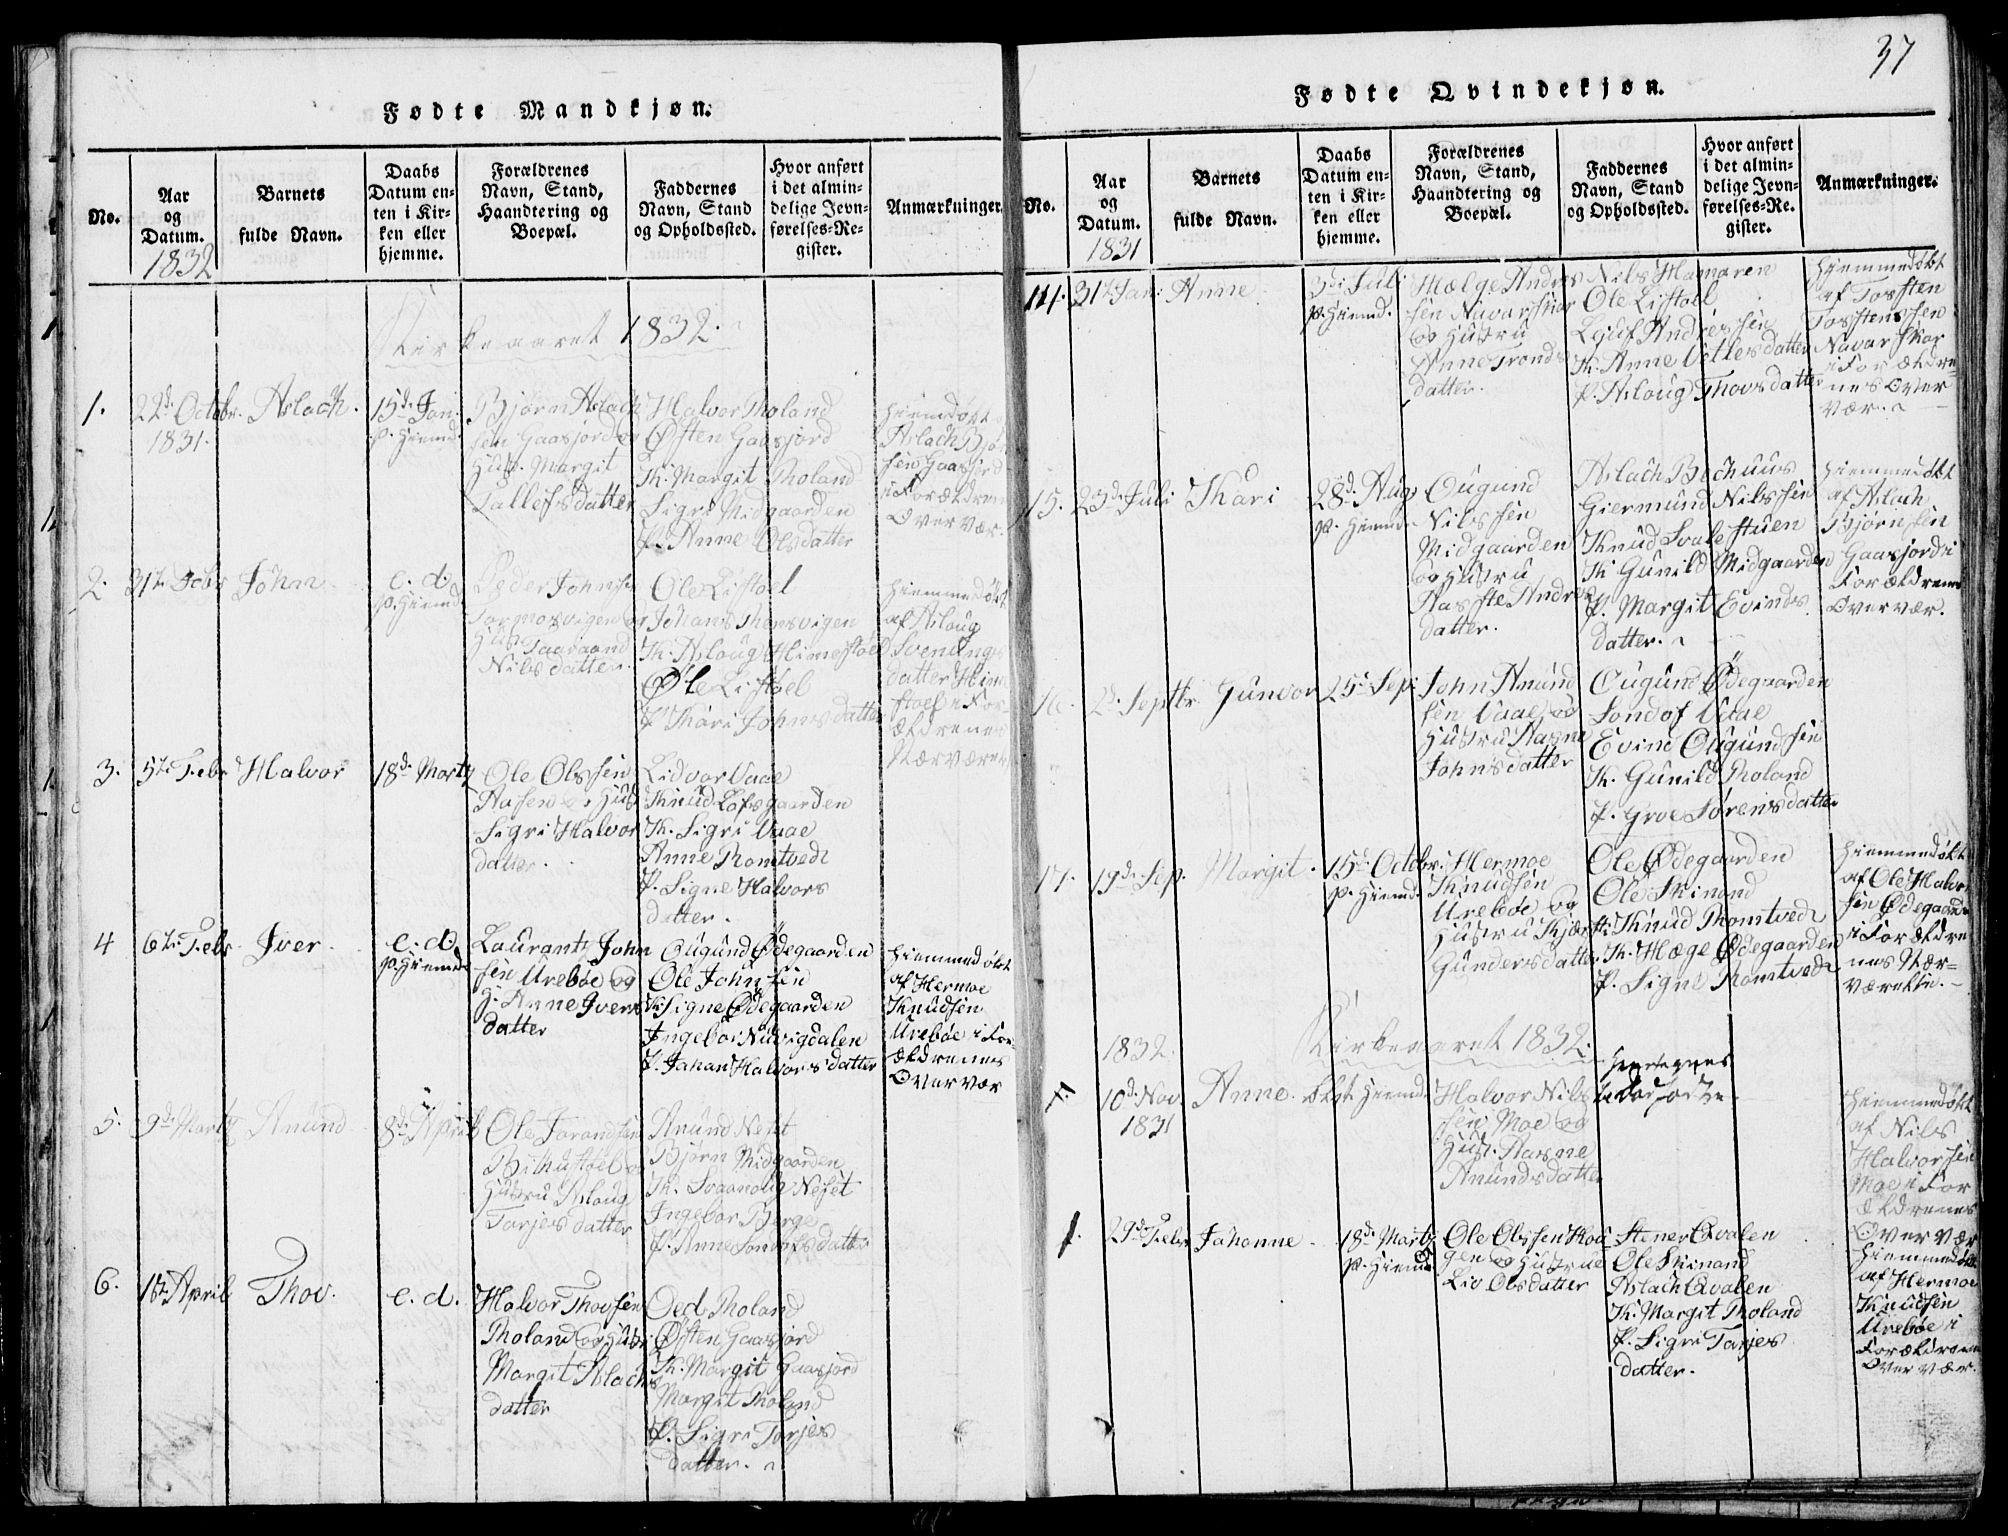 Fødte Mandkjøn.
No.
Aar
og
Datum.
1832
Barnets
fulde Navn.
Daabs
Datum en-
ten i Kir-
ken eller
hjemme.
Forældrenes
Navn, Stand,
Haandtering og
Boepæl.
Faddernes
Navn, Stand
og Opholdssted.
Hvor anført
i det almin-
delige Jevn-
førelses-Re-
gister.
Anmærkninger.
Kirkeaaret 1832.
1.
22d. Octobr.
1831.
Aslach.
15d. Jan.
p. Hiemd.
Bjørn Aslach
sen Gaasjord og
Hust. Margit
Tallefsdatter
Halvor Tholand
Østen Gaasjord
K. Margit Tholand
Sigri Midgaarden
P. Anne Olsdatter
Hiemdøbt
Aslach Bjø
sen Gaasjord
i Forældren
Overvær.
2.
John
e. d.
p. Hiemd.
Peder Johnsen
Nilsdatter.
Ole Liftoel
K. Aslaug Himestoel
Øle Liftoel
P. Kari Johnsdatter
Hiemmedøbt
af Aslaug
Svenings
datter Him
stoel i For-
ældrenes
Nærværen
3.
5te Febr
Halvor
18d. Martz
Ole Olssen
Aasen og Hust
Sigri Halvor
datter.
Lidvor Vaae
Knud Lofsgaarden
K. Sigri Vaae
Anne Romtvedt
P. Signe Halvors
datter.
4
6te Febr.
Iver
e. d.
p. Hiemd.
Laurantz John
sen Urebøe og
H. Anne Ivers
datter
Ougund Ødegaarden
Ole Johnsen
K. Signe Ødegaarden
Ingebor Nuvigdalen
P. Johan Halvorsdatter
Hiemmedøbt
af Hermoe
Knudsen
Urebøe i For-
ældrenes
Overvær
5.
9d. Martz
Anund
8d. April
Ole Torandsen
Hustru Aslaug
Tarjesdatter
Anund Neset
Bjørn Midgaarden
K. Svaanaug Neset
Ingebor Berge
P. Anne Sondofsdatter
6.
1ste April
Thov.
e. d.
Halvor Thovsen
Tholand og Hustr
Margit Aslachs
datter
Oed Tholand
Østen Gaasjord
K. Margit Gaasjord
Margit Tholand
P. Sigri Tarjes
datter.
37
Fødte Qvindekjøn.
No.
Aar
og
Datum.
1831
Barnets
fulde Navn.
Daabs
Datum en-
ten i Kir-
ken eller
hjemme.
Forældrenes
Navn, Stand,
Haandtering og
Boepæl.
Faddernes
Navn, Stand
og Opholdssted.
Hvor anført
i det almin-
delige Jevn-
førelses-Re-
gister.
Anmærkninger.
14.
31te Jan:
Anne
3d. Juli
p. Hiemd.
Hælge Andres
sen Navarskar
og Hustru
Anne Tronds
datter.
Nils Hamaren
Ole Liftoel
Leiuf Andressen
K. Anne Vetlesdatter
P. Aslaug Thovsdatter
Hiemmedøbt
af Tosften
Tosftenssen
Navarskar
i Forældre-
nes Over
vær.
15.
23d. Juli
Kari
28d. Aug
p. Hiemd.
Ougund
Nilssen
Midgaarden
og Hustru
Aasfte Andres
datter.
Aslach Bochuus
Giermund Nilssen
Knud Svalestuen
K. Gunild Midgaarden
P. Margit Evinds
datter.
Hiemmedøbt
af Aslach
Bjørnsen
Gaasjord i
Forældrenes
Overvær.
16.
2d. Septbr
Gunvor
25d. Sep:
John Anund
sen Vaae og
Hustru Aasne
Johnsdatter
Ougund Ødegaarden
Sondof Vaae
Evind Ougundsen
K. Gunild Tholand
P. Groe Sørensdatter
17.
19d. Sep.
Margit.
15d. Octobr.
p. Hiemd.
Hermoe
Knudsen
Urebøe og
Hustru Kjersti
Gundersdatter
Ole Ødegaarden
Ole Skinand
Knud Romtvedt
K. Hæge Ødegaarden
P. Signe Romtvedt
Hiemmedøbt
af Ole Halvor
sen Ødegaarden
i Forældre
nes Nær-
værelse.
1832.
Kirkeaaret 1832.
10d. Nov.
1831
Anne.
døbt Hiemd.
Halvor Nils
sen Moe og
Hust. Aasne
Anundsdatter
Hiemmedøbt
af Nils
Halvorsen
Moe i For
ældrenes
Overvær
1.
29d. Febr
Johanne
18d. Martz
p. Hiemd.
Ole Olssen
gen og Hustrue
Liv Olsdatter
Stener Qvalen
Ole Skinand
Aslach Qvalen
K. Margit Tholand
P. Sigri Tarjes
datter.
Hiemmedøbt
af Hermoe
Knudsen
Urebøe i
Forældrenes
Overvær.